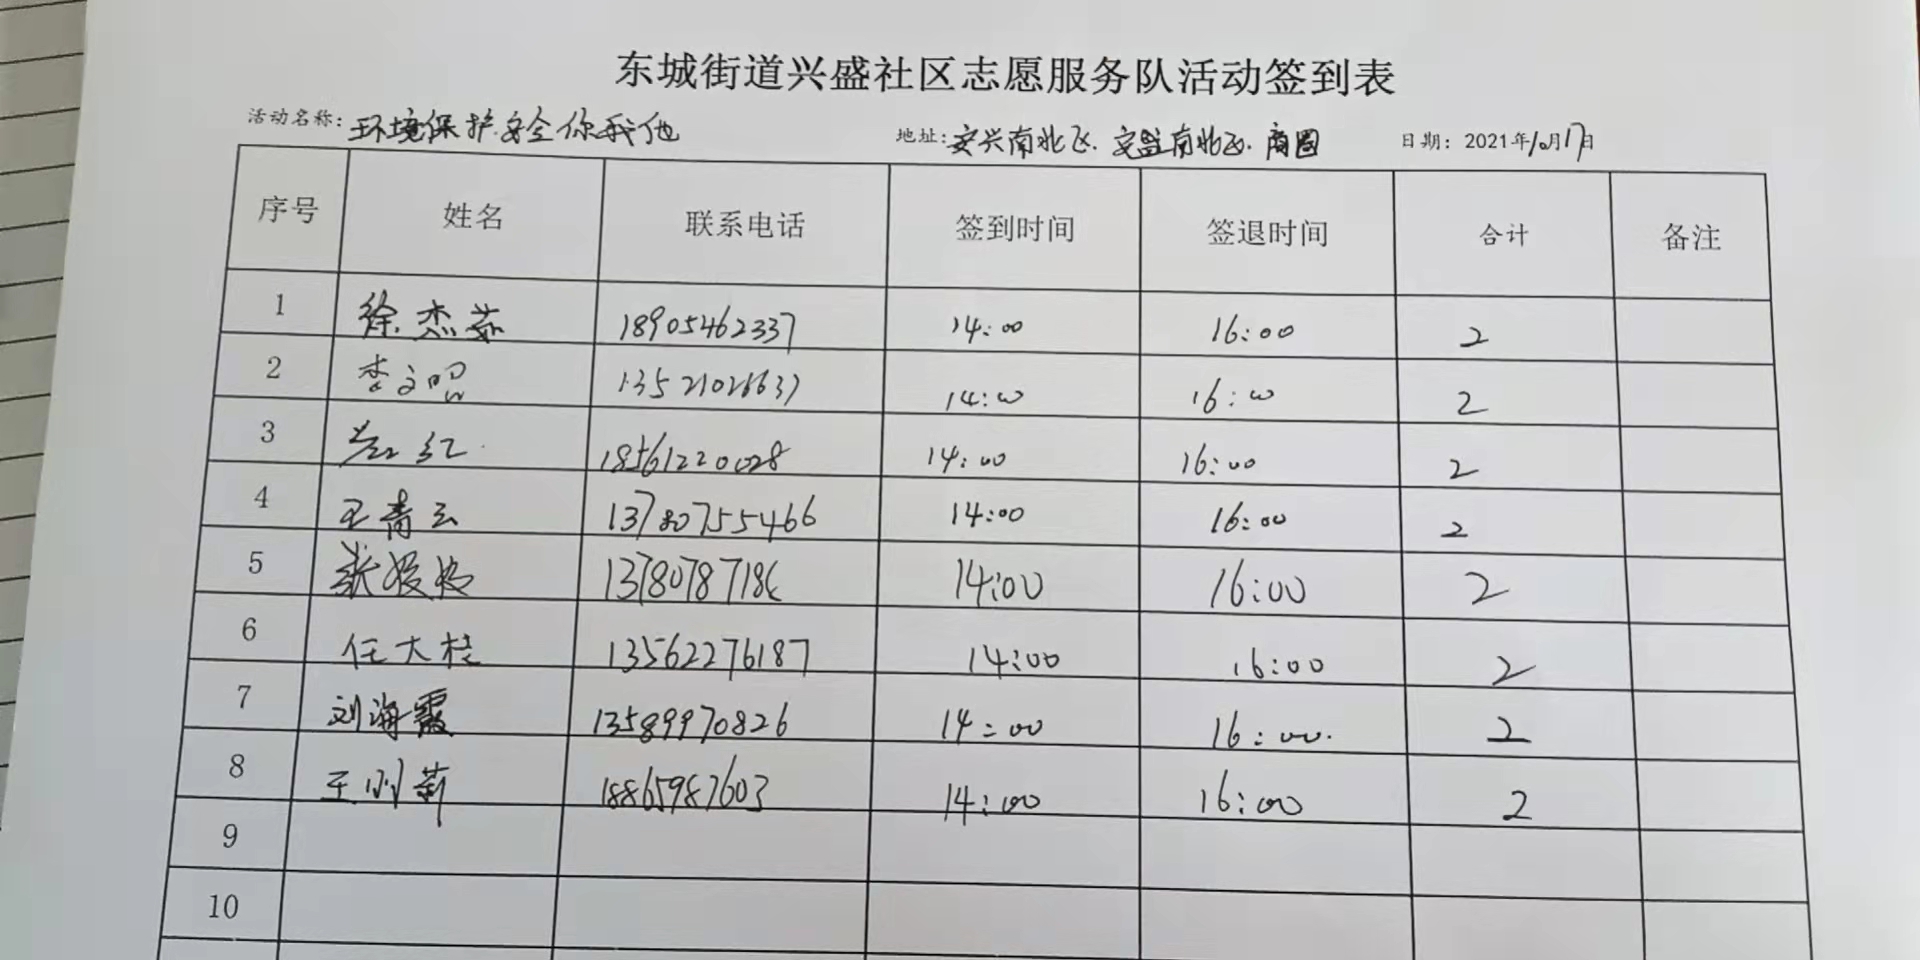 东城街道兴盛社区志愿服务队活动签到表
活动名称: 环境保护.安全你我他 地址: 安兴南北区.安盐南北区.商圈 日期: 2021年10月17日
序号 姓名 联系电话 签到时间 签退时间 合计 备注
1 徐杰茹 18905462337 14:00 16:00 2
2 李文 13521026637 14:00 16:00 2
3 红 18561220028 14:00 16:00 2
4 王青云 13780755466 14:00 16:00 2
5 张媛媛 13780787186 14:00 16:00 2
6 任大桂 13562276187 14:00 16:00 2
7 刘海霞 13589970826 14:00 16:00. 2
8 王莉 18865987603 14:00 16:00 2
9
10